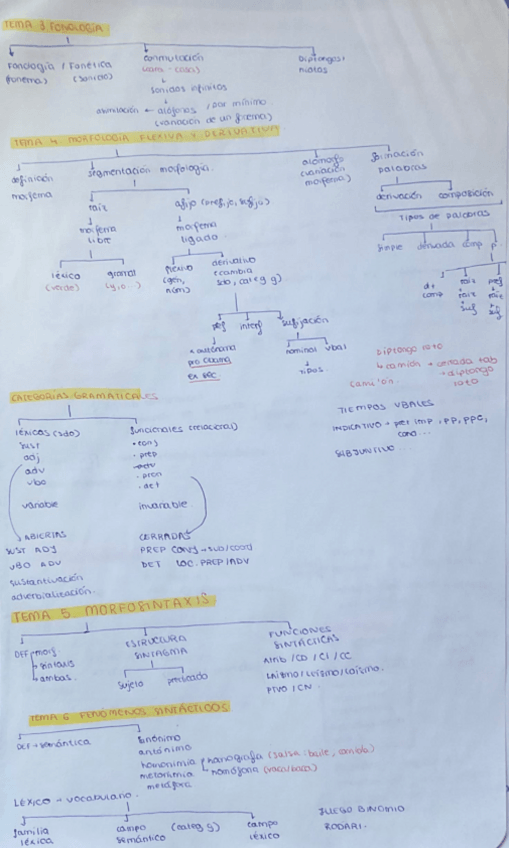 TEMA 3 FONOLOGÍA
Fonología / Fonética
(fonema) (sonido)
conmutación
(cama - casa)
sonidos infinitos
asimilación ← alófonos / par mínimo
(variación de un fonema)
Diptongos/
hiatos
TEMA 4 MORFOLOGÍA FLEXIVA Y DERIVATIVA
definición
morfema
segmentación morfología
raíz
morfema
libre
léxico
(verde)
gramat
(y, o...)
afijo (prefijo, sufijo)
morfema
ligado
flexivo
(gén,
núm)
derivativo
cambia
sdo, categ g)
pref interf sufijación
nominal vbal
tipos
alomorfo
(variación
morfema)
formación
palabras
derivación composición
Tipos de palabras
simple derivada comp p
Diptongo roto
↳ camión → contada tab
→ diptongo
roto
cami'on
TIEMPOS VBALES
INDICATIVO → pret imp, PP, PPC,
cond...
SUBJUNTIVO...
CATEGORÍAS GRAMATICALES
léxicas (sdo)
sust
adj
adv
vbo
variable
ABIERTAS
SUST ADJ
VBO ADV
sustantivación
adverbialización.
funcionales (relacional)
• conj
• prep
• pron
• det
invariable
CERRADAS
PREP CONJ → SUB/COORD
DET LOC. PREP/ADV
TEMA 5 MORFOSINTAXIS
DEF morf
sintaxis
ambas.
ESTRUCTURA
SINTAGMA
sujeto predicado
FUNCIONES
SINTÁCTICAS
Atrib / CD / CI / CC
Laísmo / Leísmo / Loísmo.
PTVO / CN.
TEMA 6 FENÓMENOS SINTÁCTICOS
DEF → semántica
sinónimo
antónimo
homonimia homografía (salsa: baile, comida)
metonimia homófona (vaca/baca)
metáfora
LÉXICO → vocabulario.
familia
léxica
campo (categ g)
semántico
campo
léxico
JUEGO BINOMIO
RODARI.